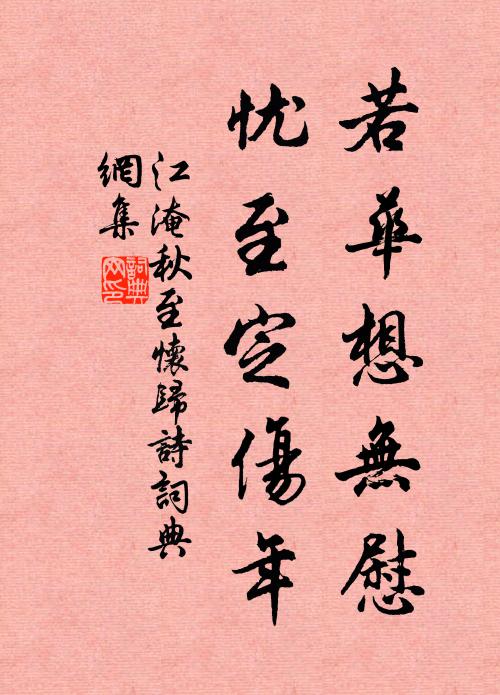 若華想無慰
忧至定傷年
江淹秋至懷歸詩詞典
網集
詞典
网印